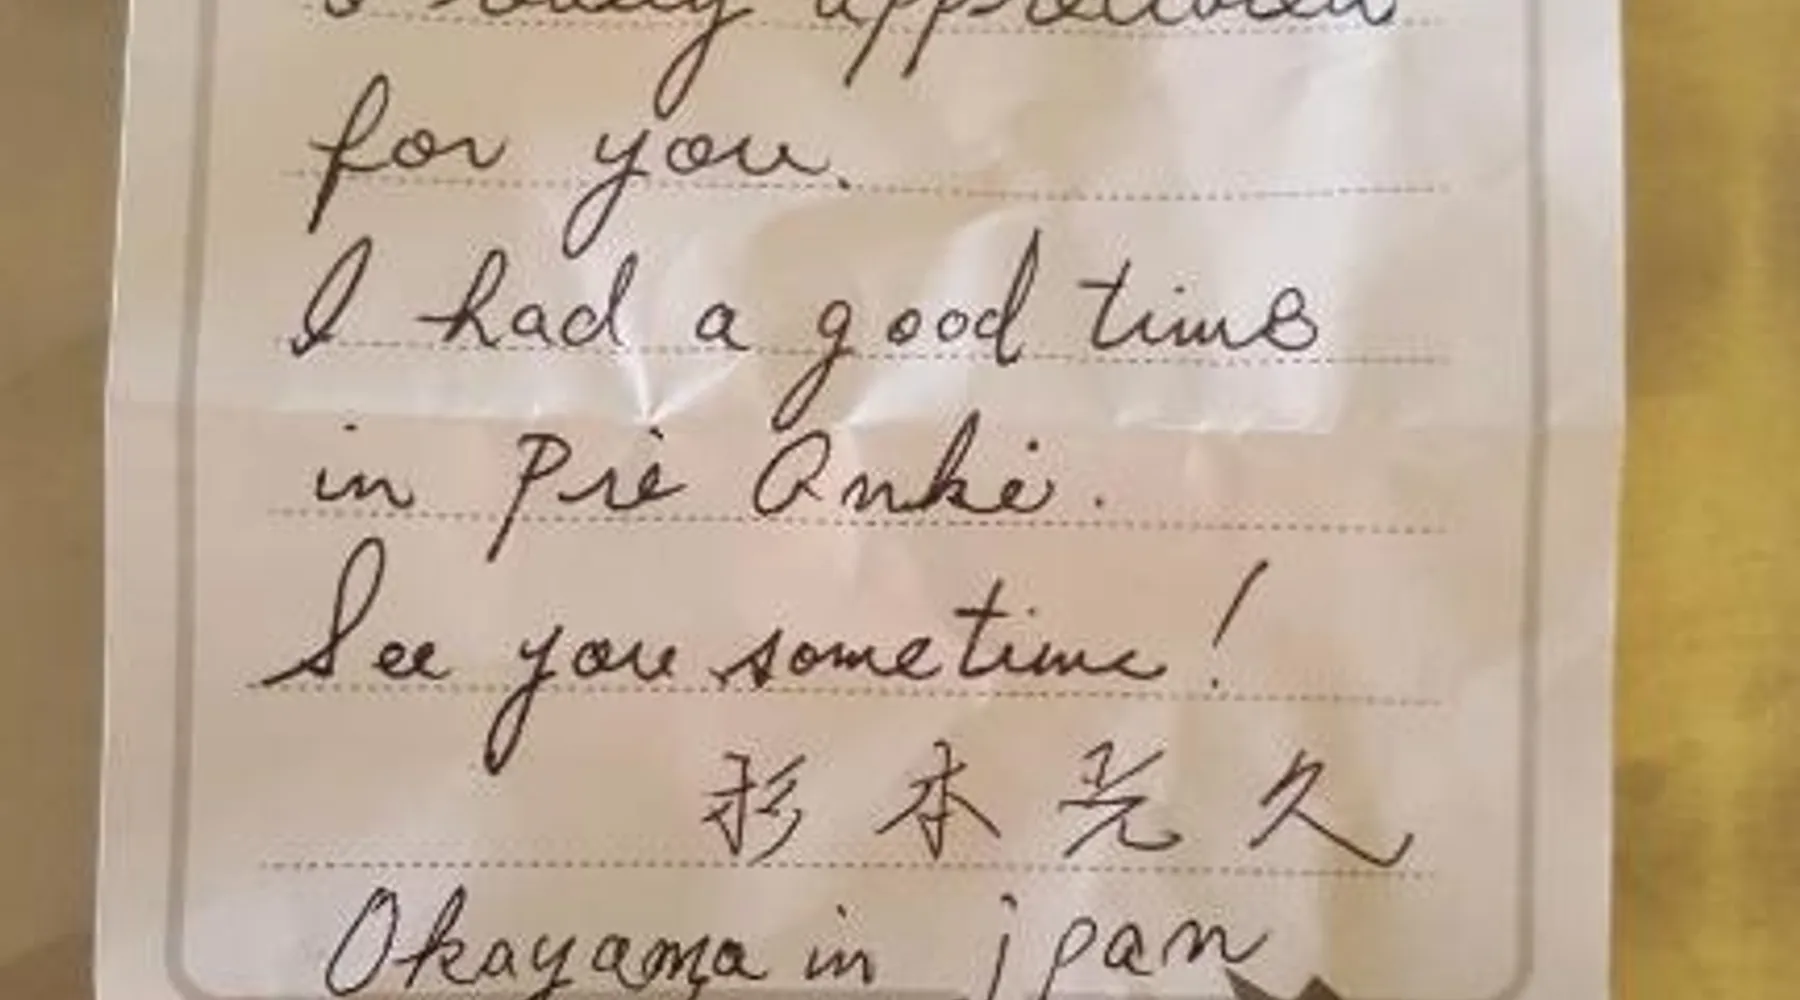 I really appreciated
for you.
I had a good time
in Pie Anke.
See you sometime!
杉本光久
Okayama in jpan